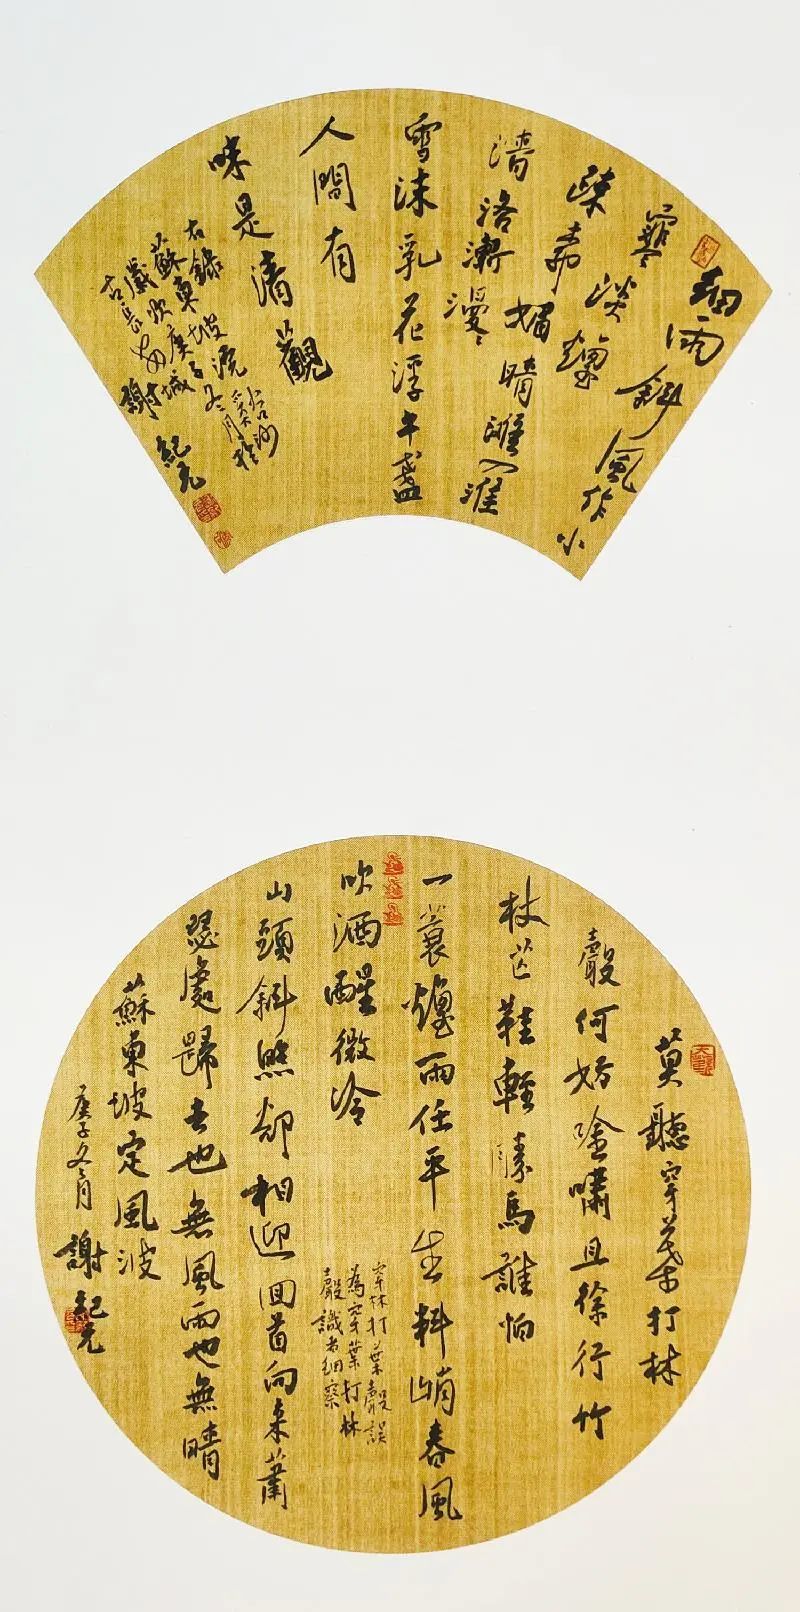 細雨斜風作小
寒淡煙
疎媚晴灘入淮
清洛漸漫
雪沫乳花浮午盞
人間有
味是清觀
右錄
蘇東坡浣
庚子冬月
謝紀元
莫聽穿葉打林
聲何妨唫嘯且徐行竹
杖芒鞋輕勝馬誰怕
一蓑煙雨任平生料峭春風
吹酒醒微冷
穿林打葉聲誤
為穿葉打林
聲識者細察
山頭斜照却相迎回首向来蕭
瑟處歸去也無風雨也無晴
蘇東坡定風波
庚子冬月 謝紀元